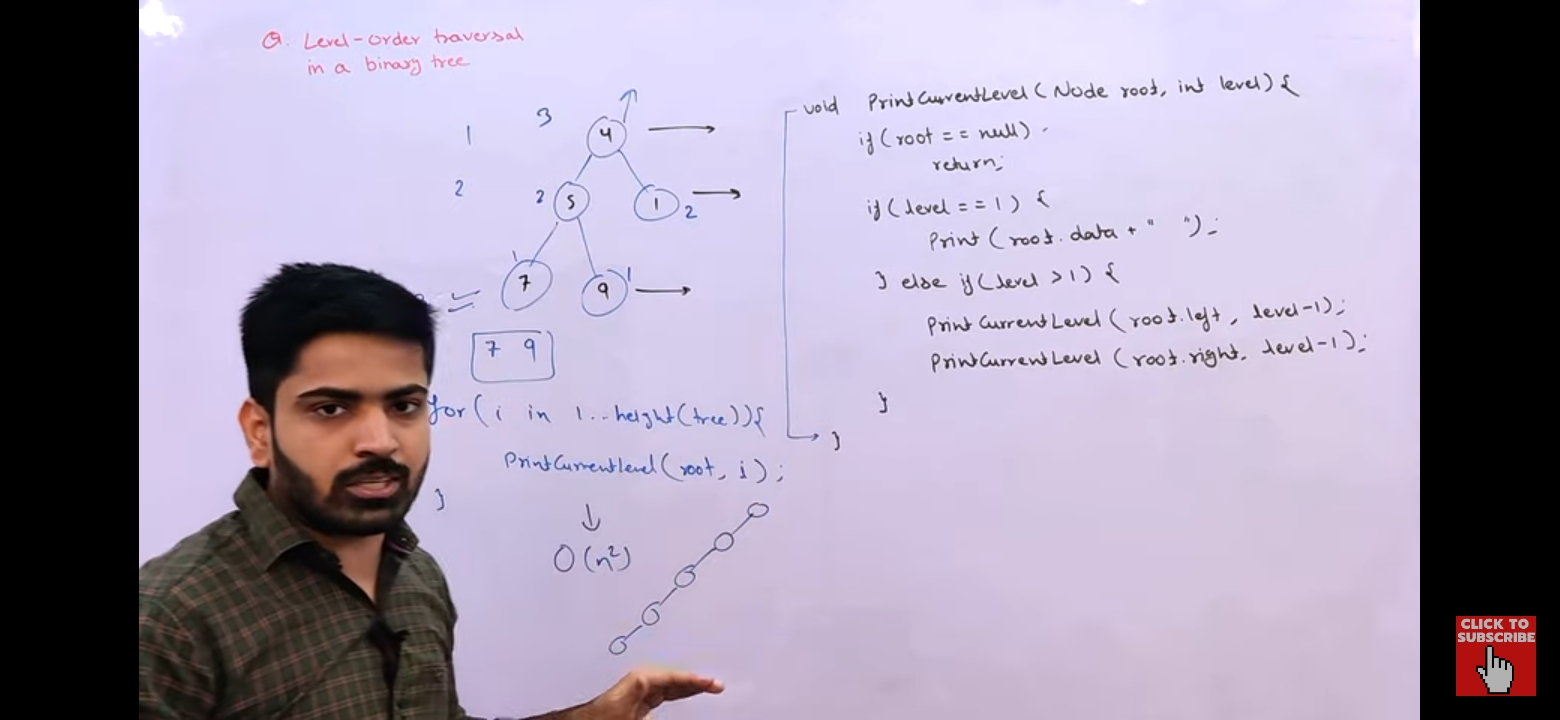 Q. Level-order traversal
in a binary tree
1
3
4
2
2
5
1
2
1
7
9
1
7 9
for( i in 1..height(tree)){
PrintCurrentLevel(root, i);
}
O(n²)
void PrintCurrentLevel(Node root, int level){
if(root == null)
return;
if(level == 1) {
Print(root.data + " ");
} else if(level > 1) {
PrintCurrentLevel(root.left, level-1);
PrintCurrentLevel(root.right, level-1);
}
}
CLICK TO
SUBSCRIBE